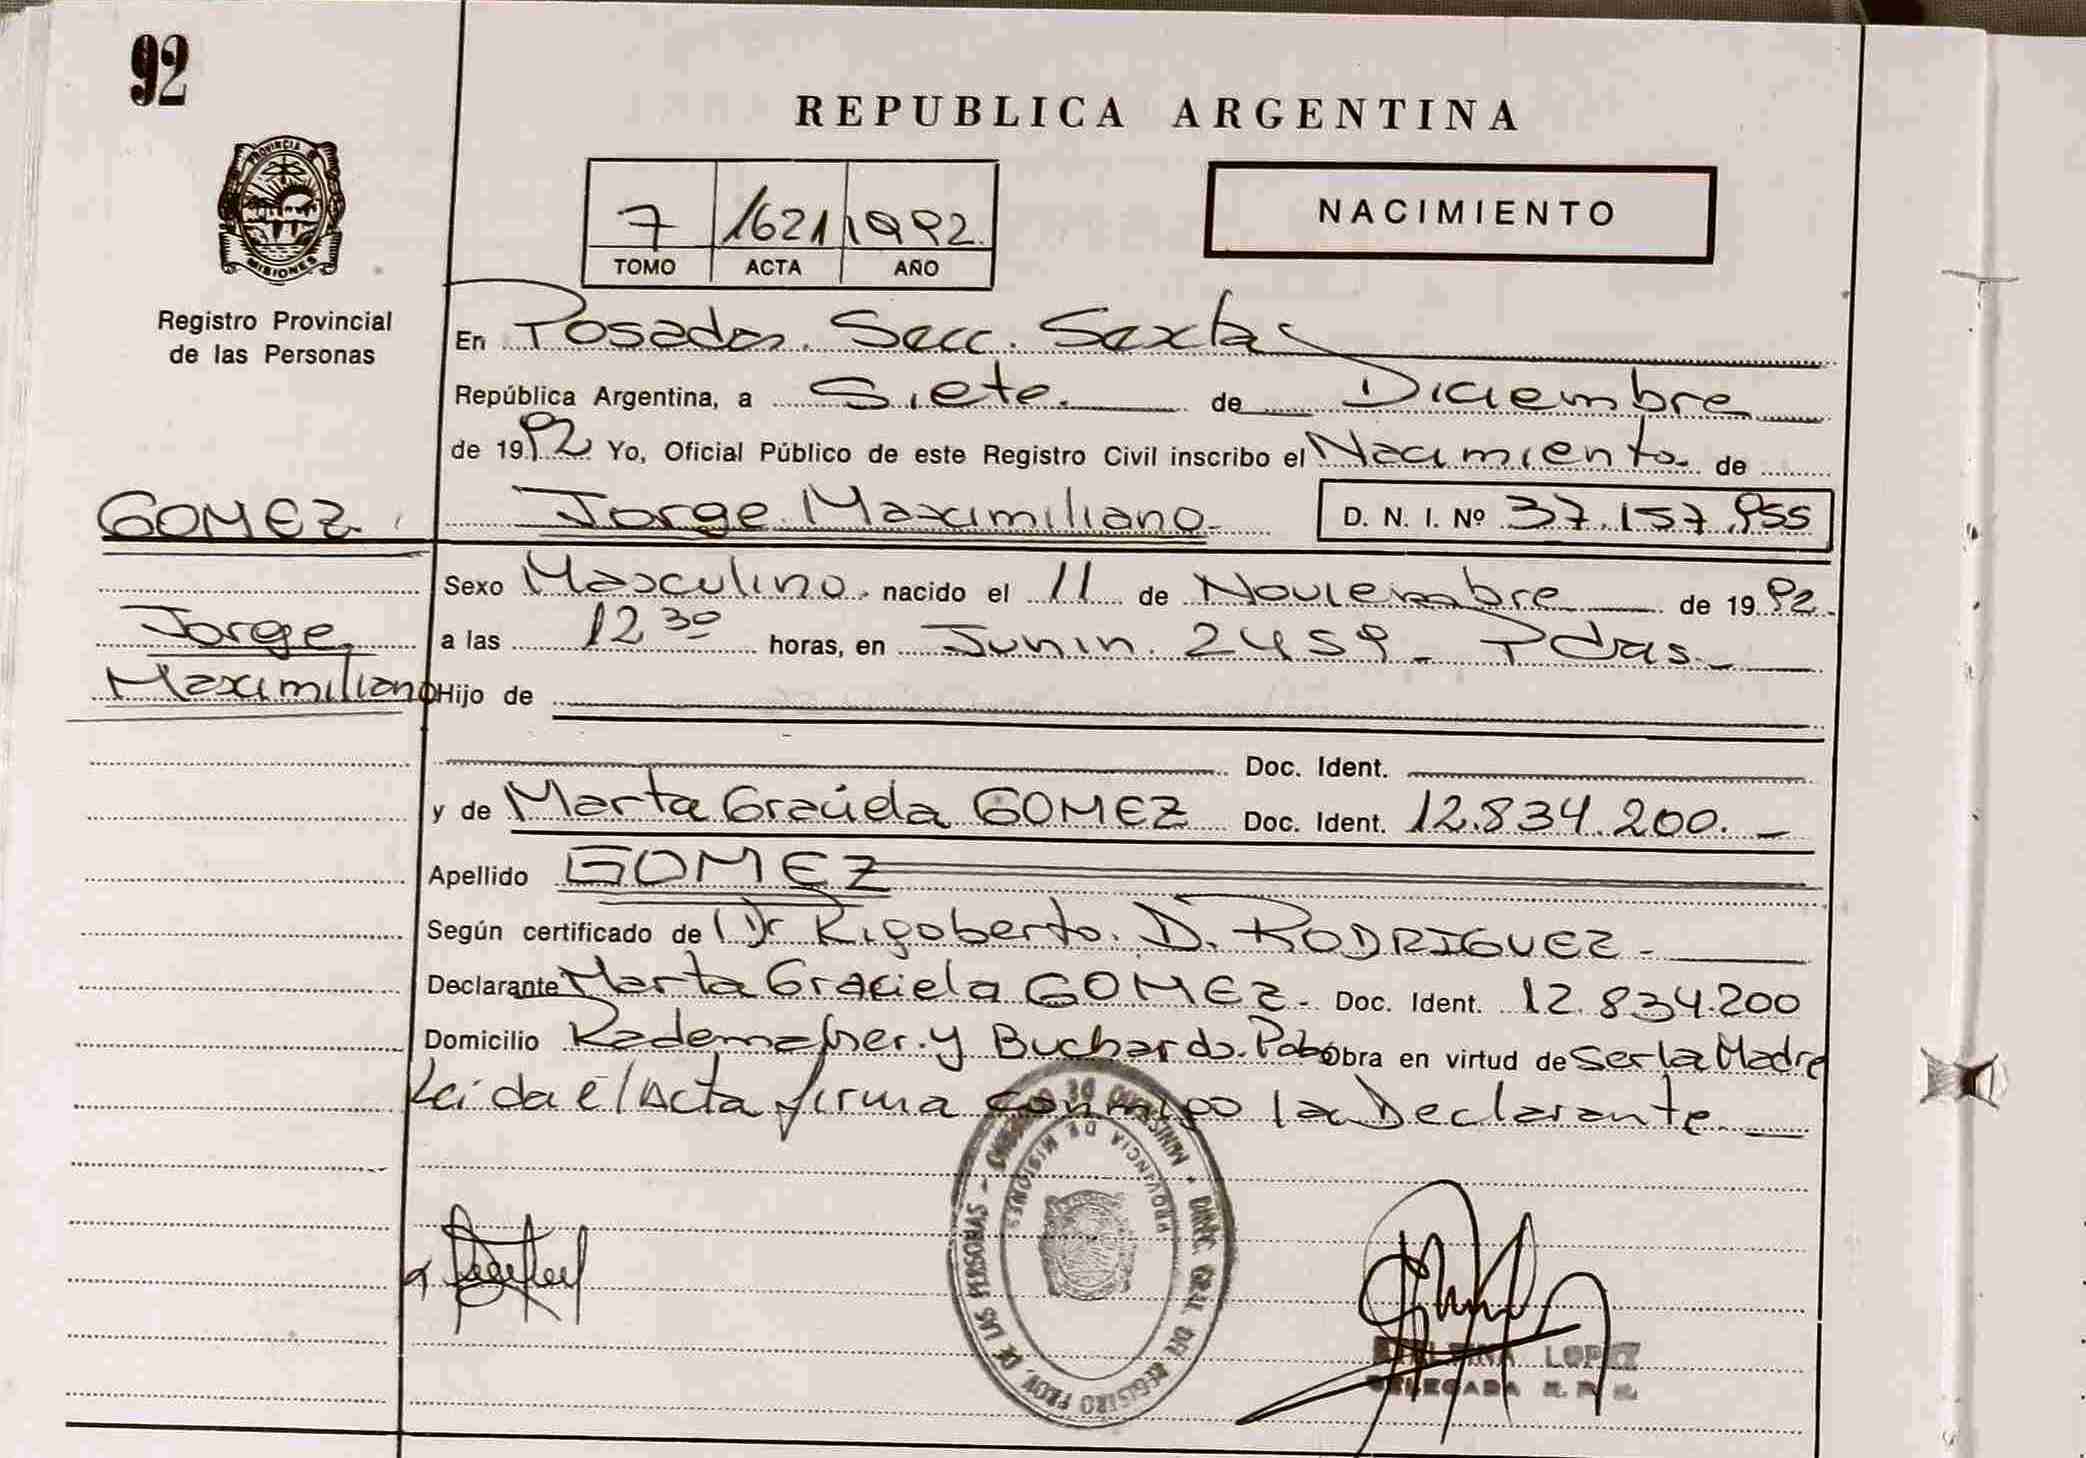 92
REPUBLICA ARGENTINA
PROVINCIA DE
MISIONES
Registro Provincial
de las Personas
7 1621 1992.
TOMO ACTA AÑO
NACIMIENTO
En Posadas. Secc. Sexta
República Argentina, a Siete. de Diciembre
de 1992 Yo, Oficial Público de este Registro Civil inscribo el Nacimiento de
GOMEZ. Jorge Maximiliano D. N. I. Nº 37.157.955
Sexo Masculino. nacido el 11 de Noviembre de 1992.
Jorge a las 12 30 horas, en Junin. 2459 - Pdas.-
Maximiliano Hijo de
Doc. Ident.
y de Marta Graciela GOMEZ Doc. Ident. 12.834.200.-
Apellido GOMEZ
Según certificado de Dr Rigoberto. D. RODRIGUEZ-
Declarante Marta Graciela GOMEZ- Doc. Ident. 12.834.200
Domicilio y Buchardo. Obra en virtud de Ser la Madre
Leida el Acta firma conmigo la Declarante.
DIREC. GRAL. DEL REGISTRO PROV. DE LAS PERSONAS - MINISTERIO DE GOBIERNO
PROVINCIA DE MISIONES
LOPEZ
DELEGADA